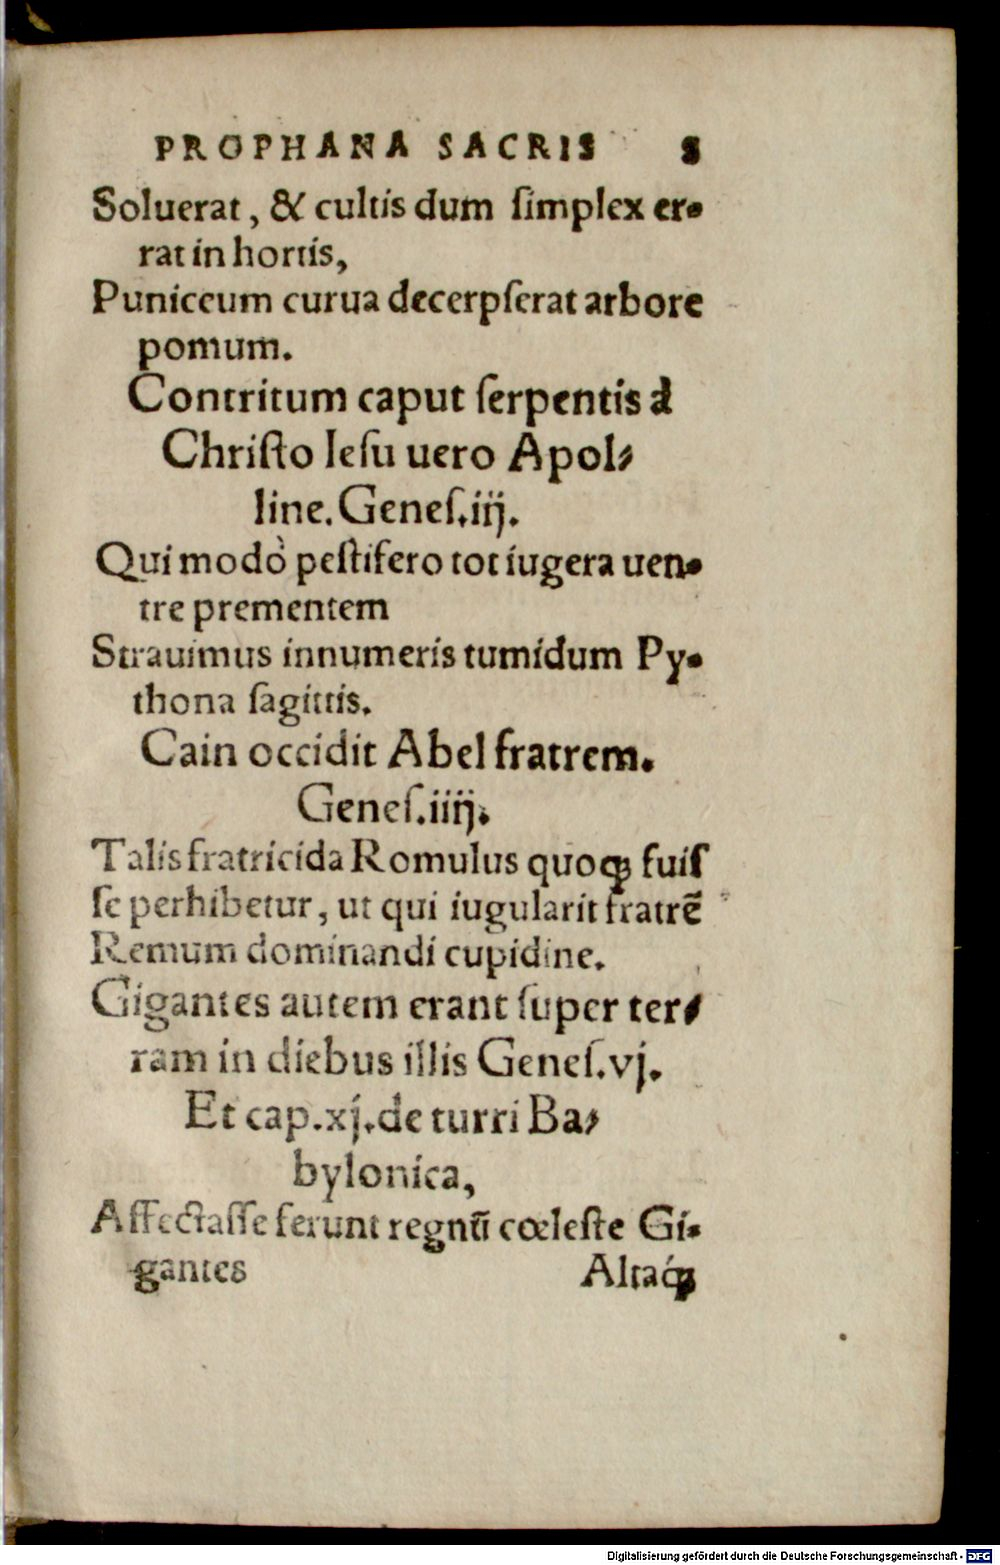 PROPHANA SACRIS 8
Soluerat, & cultis dum ſimplex er-
rat in hortis,
Puniceum curua decerpſerat arbore
pomum.
Contritum caput ſerpentis à
Chriſto Ieſu uero Apol-
line. Geneſ.iij.
Qui modò peſtifero tot iugera uen-
tre prementem
Strauimus innumeris tumidum Py-
thona ſagittis.
Cain occidit Abel fratrem.
Geneſ.iiij.
Talis fratricida Romulus quoqꝫ fuiſ
ſe perhibetur, ut qui iugularit fratrē
Remum dominandi cupidine.
Gigantes autem erant ſuper ter-
ram in diebus illis Geneſ.vj.
Et cap.xj.de turri Ba-
bylonica,
Affectaſſe ferunt regnū cœleſte Gi-
gantes Altaqꝫ́
Digitalisierung gefördert durch die Deutsche Forschungsgemeinschaft - DFG